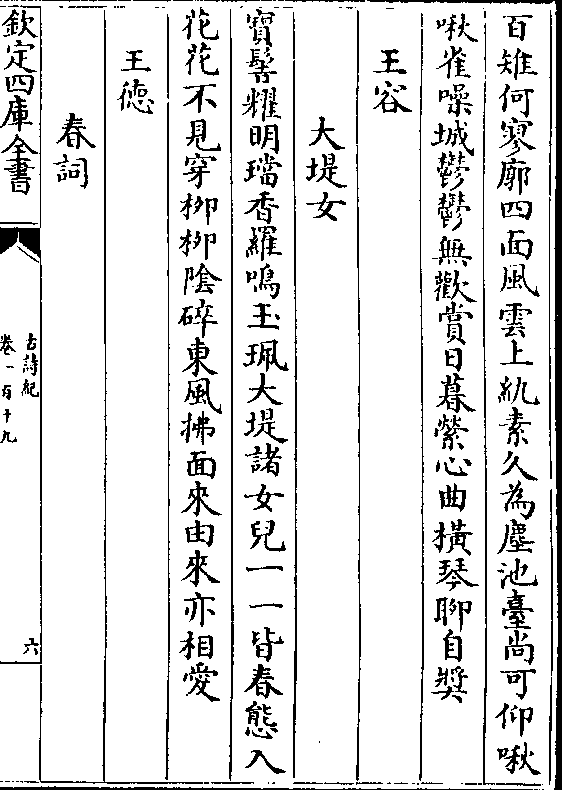 百雉何寥廓四面風雲上紈素久為塵池臺尚可仰啾
啾雀噪城鬱鬱無歡賞日暮縈心曲橫琴聊自奬
王容
大堤女
寶髻耀明璫香羅鳴玉珮大堤諸女兒一一皆春態入
花花不見穿栁栁陰碎東風拂面來由來亦相愛
王德
春詞
欽定四庫全書
古詩紀
卷一百十九
六